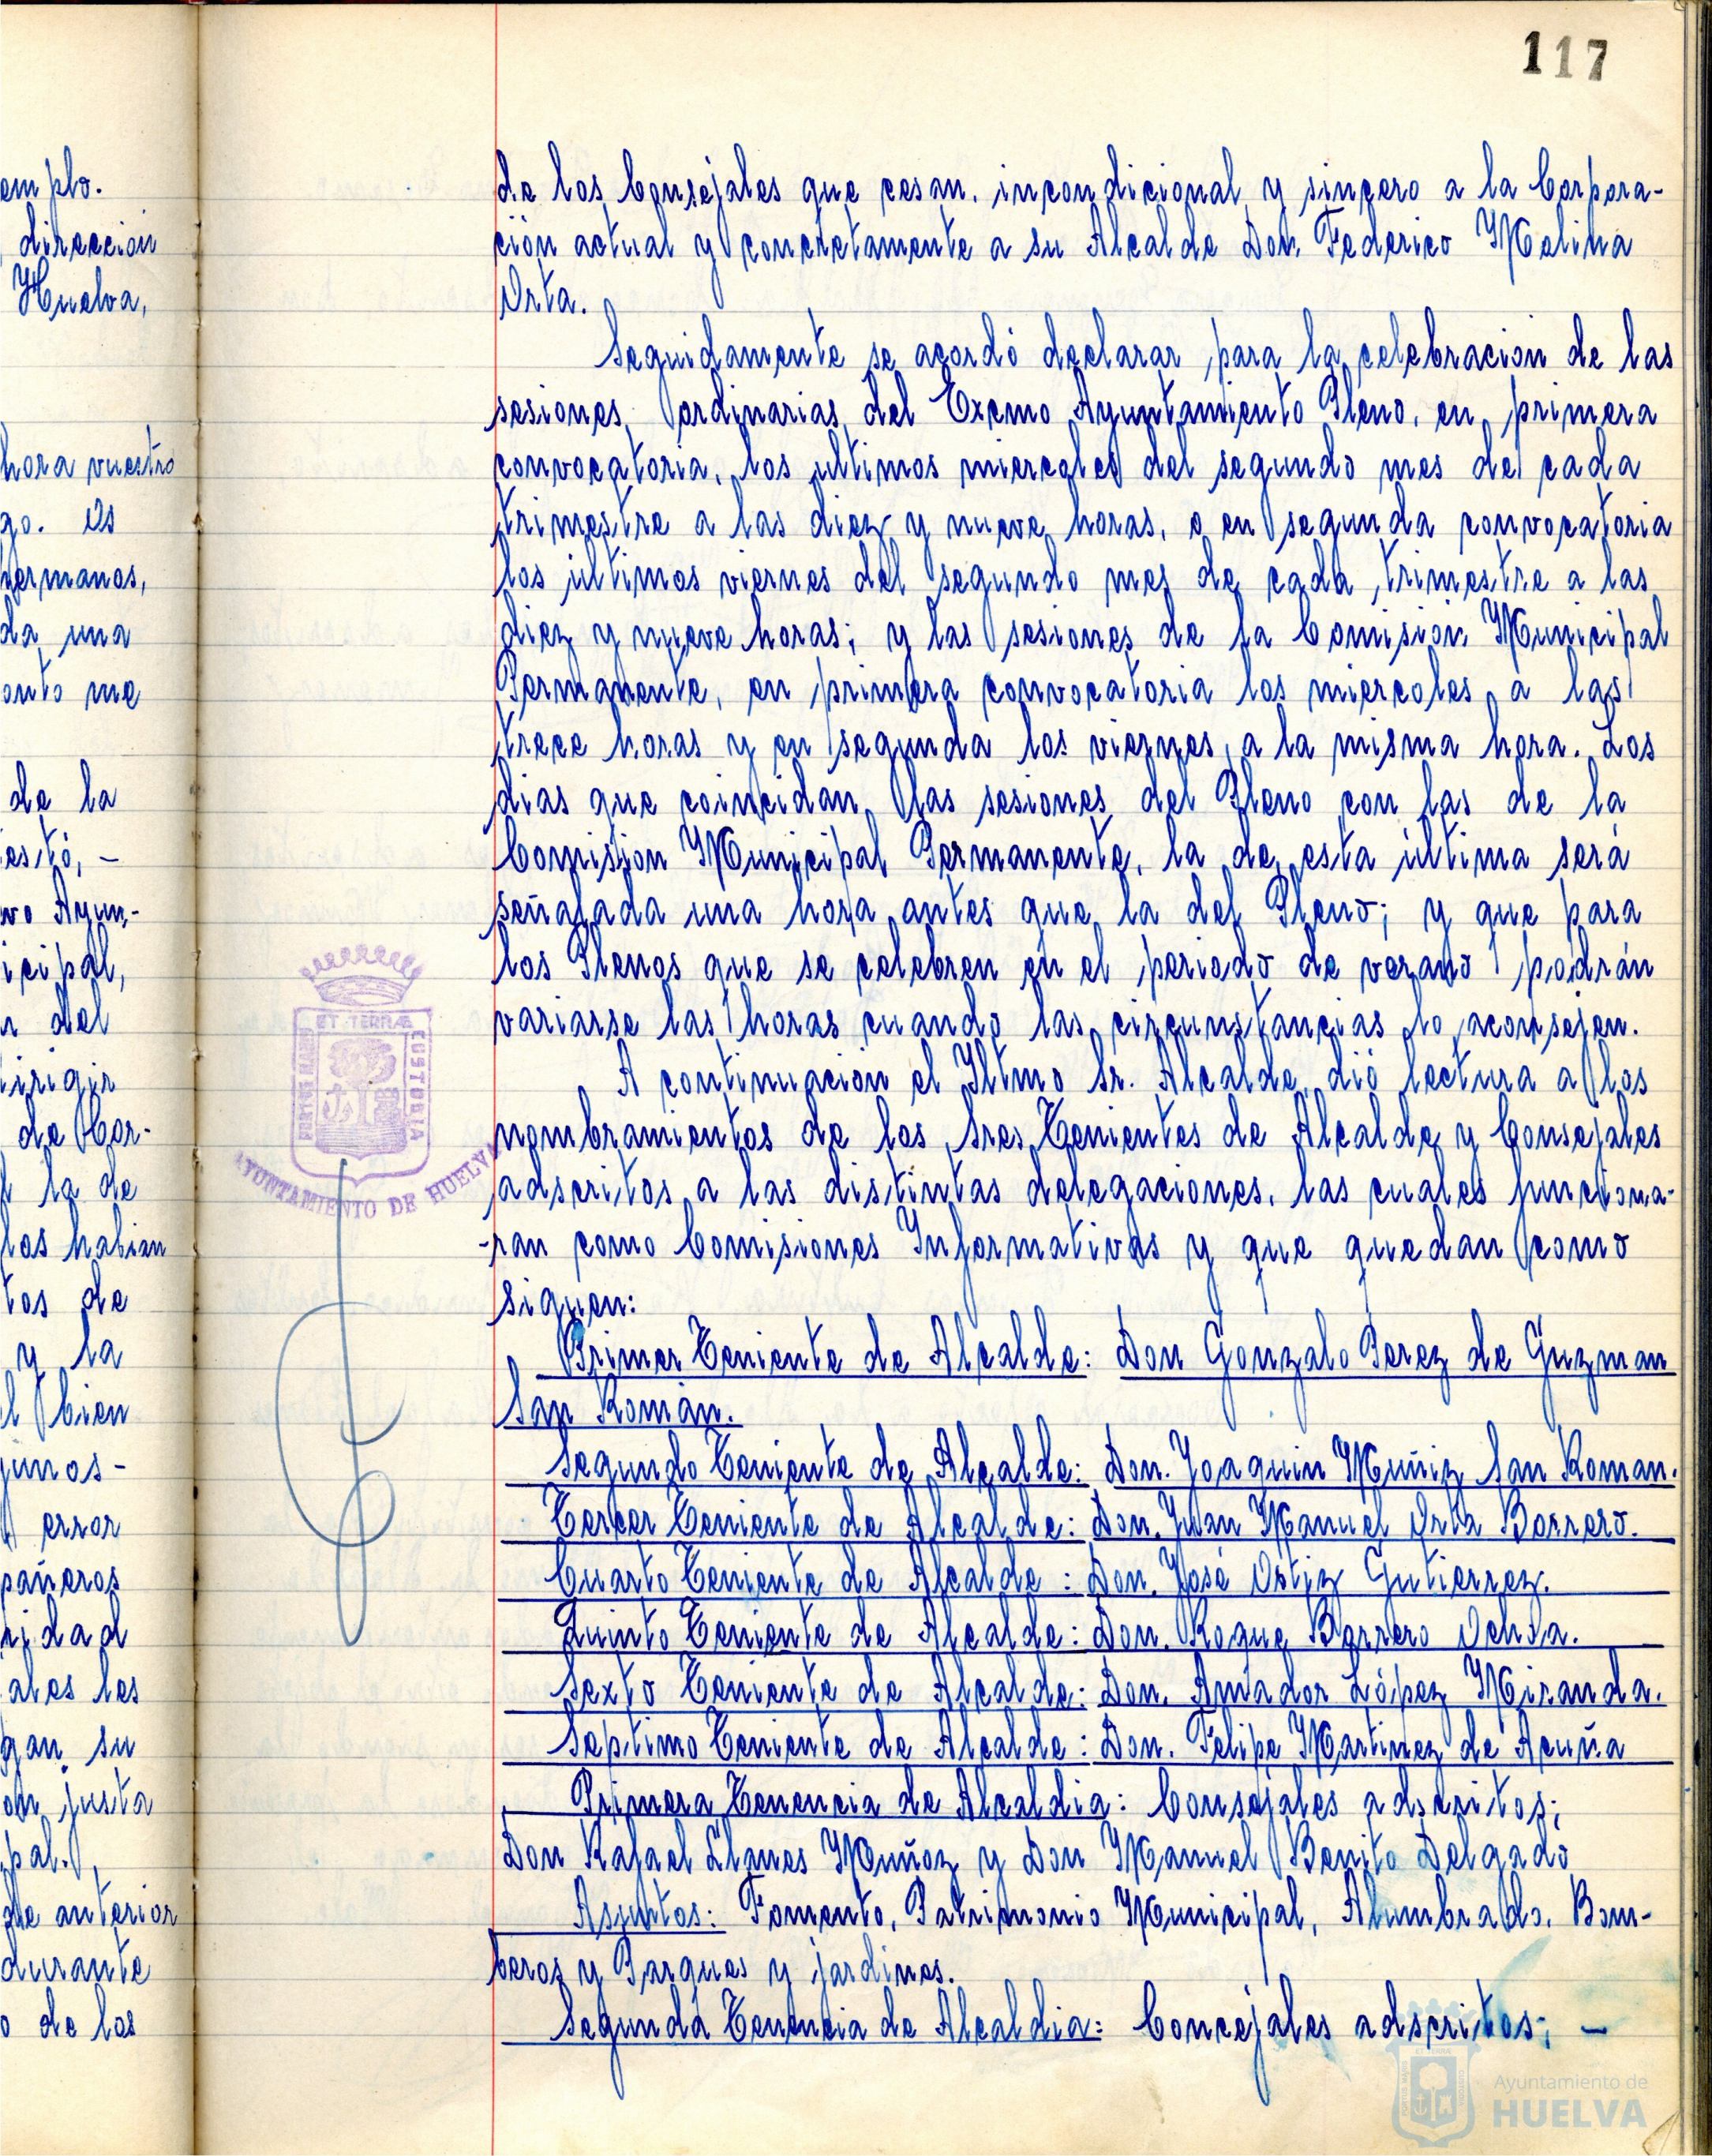 117
emplo.
, dirección
Huelva,
hora vuestro
go. Os
hermanos,
da una
onto me
de la
estó, -
vo Ayun-
icipal,
n del
dirigir
de Cor-
l la de
los habian
tos de
y la
el bien
junos-
error
pañeros
ridad
ales les
gan su
on justa
pal.
de anterior
durante
o de los
de los Consejales que cesan, incondicional y sincero a la Corpora-
ción actual y concretamente a su Alcalde Don Federico Molina
Orta.
Seguidamente se acordó declarar para la celebracion de las
sesiones ordinarias del Excmo Ayuntamiento Pleno, en primera
convocatoria, los ultimos miercoles del segundo mes de cada
trimestre a las diez y nueve horas, o en segunda convocatoria
los ultimos viernes del segundo mes de cada trimestre a las
diez y nueve horas; y las sesiones de la Comision Municipal
Permanente, en primera convocatoria los miercoles a las
trece horas y en segunda los viernes, a la misma hora. Los
dias que coincidan las sesiones del Pleno con las de la
Comision Municipal Permanente, la de esta última será
señalada una hora antes que la del Pleno; y que para
los Plenos que se celebren en el periodo de verano podrán
variarse las horas cuando las circunstancias lo aconsejen.
A continuación el Iltmo Sr. Alcalde, dió lectura a los
nombramientos de los Sres Tenientes de Alcalde y Consejales
adscritos a las distintas delegaciones, las cuales funciona-
-ran como Comisiones Informativas y que quedan como
siguen:
Primer Teniente de Alcalde: Don Gonzalo Perez de Guzman
San Román.
Segundo Teniente de Alcalde: Don. Joaquin Muñiz San Roman.
Tercer Teniente de Alcalde: Don. Juan Manuel Orta Borrero.
Cuarto Teniente de Alcalde: Don. José Ortiz Gutierrez.
Quinto Teniente de Alcalde: Don. Roque Barrero Ochoa.
Sexto Teniente de Alcalde: Don. Amador López Miranda.
Septimo Teniente de Alcalde: Don. Felipe Martinez de Acuña
Primera Tenencia de Alcaldia: Consejales adscritos;
Don Rafael Llanes Muñoz y Don Manuel Benito Delgado
Asuntos: Fomento, Patrimonio Municipal, Alumbrado, Bom-
beros y Parques y jardines.
Segunda Tenencia de Alcaldia: Concejales adscritos; -
PORTUS MARIS
ET TERRAE
CUSTODIA
AYUNTAMIENTO DE HUELVA
Ayuntamiento de
HUELVA